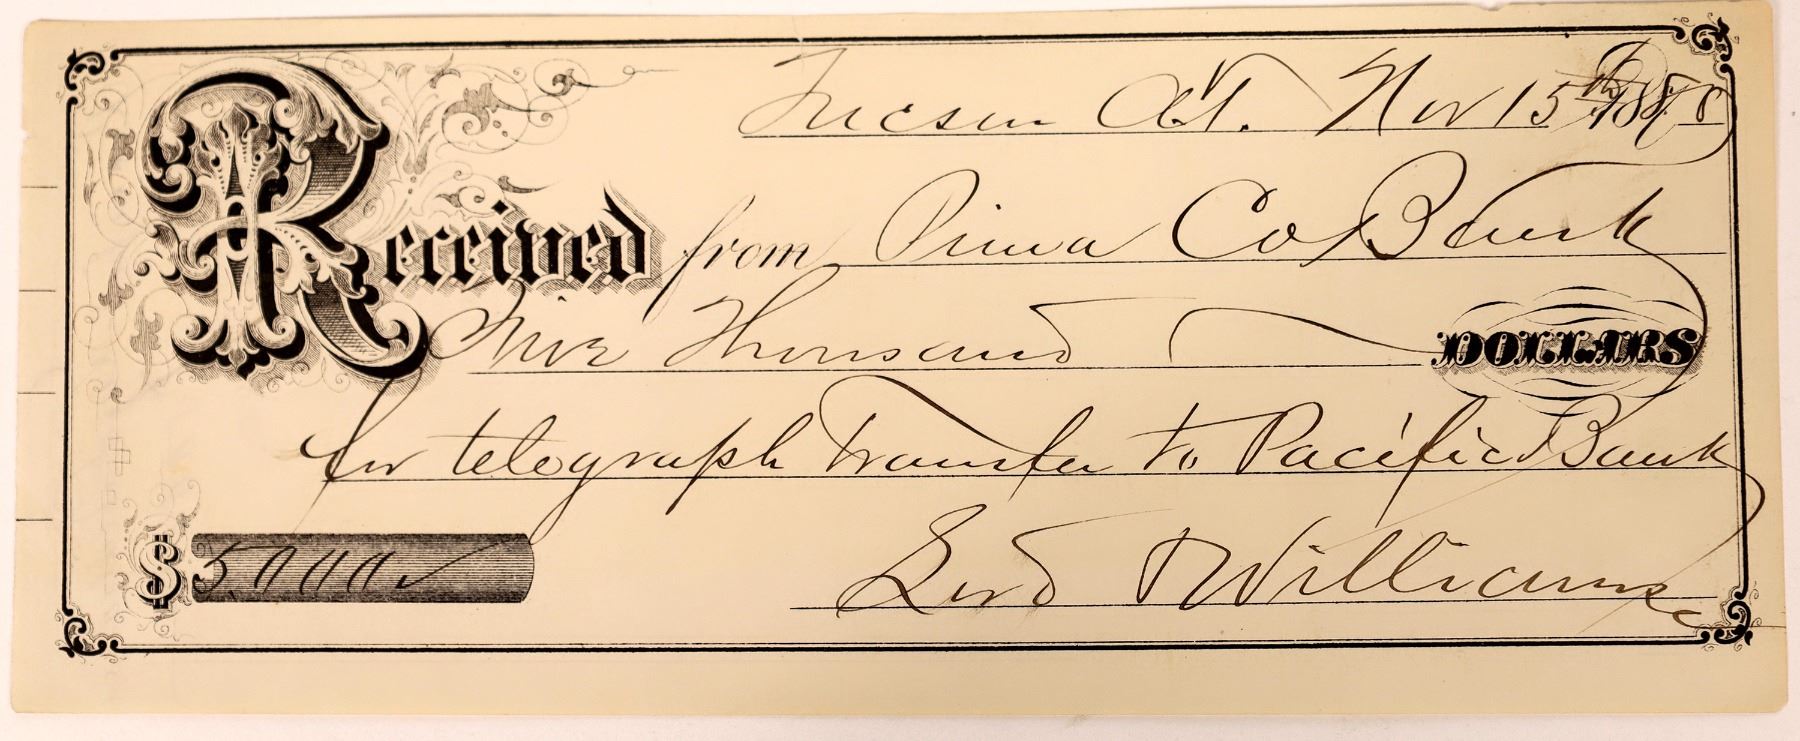 Tucson A.T. Nov 15th 187
Received from Pima Co Bank
Five Thousand DOLLARS
for telegraph transfer to Pacific Bank
$ 5,000
Lord & Williams